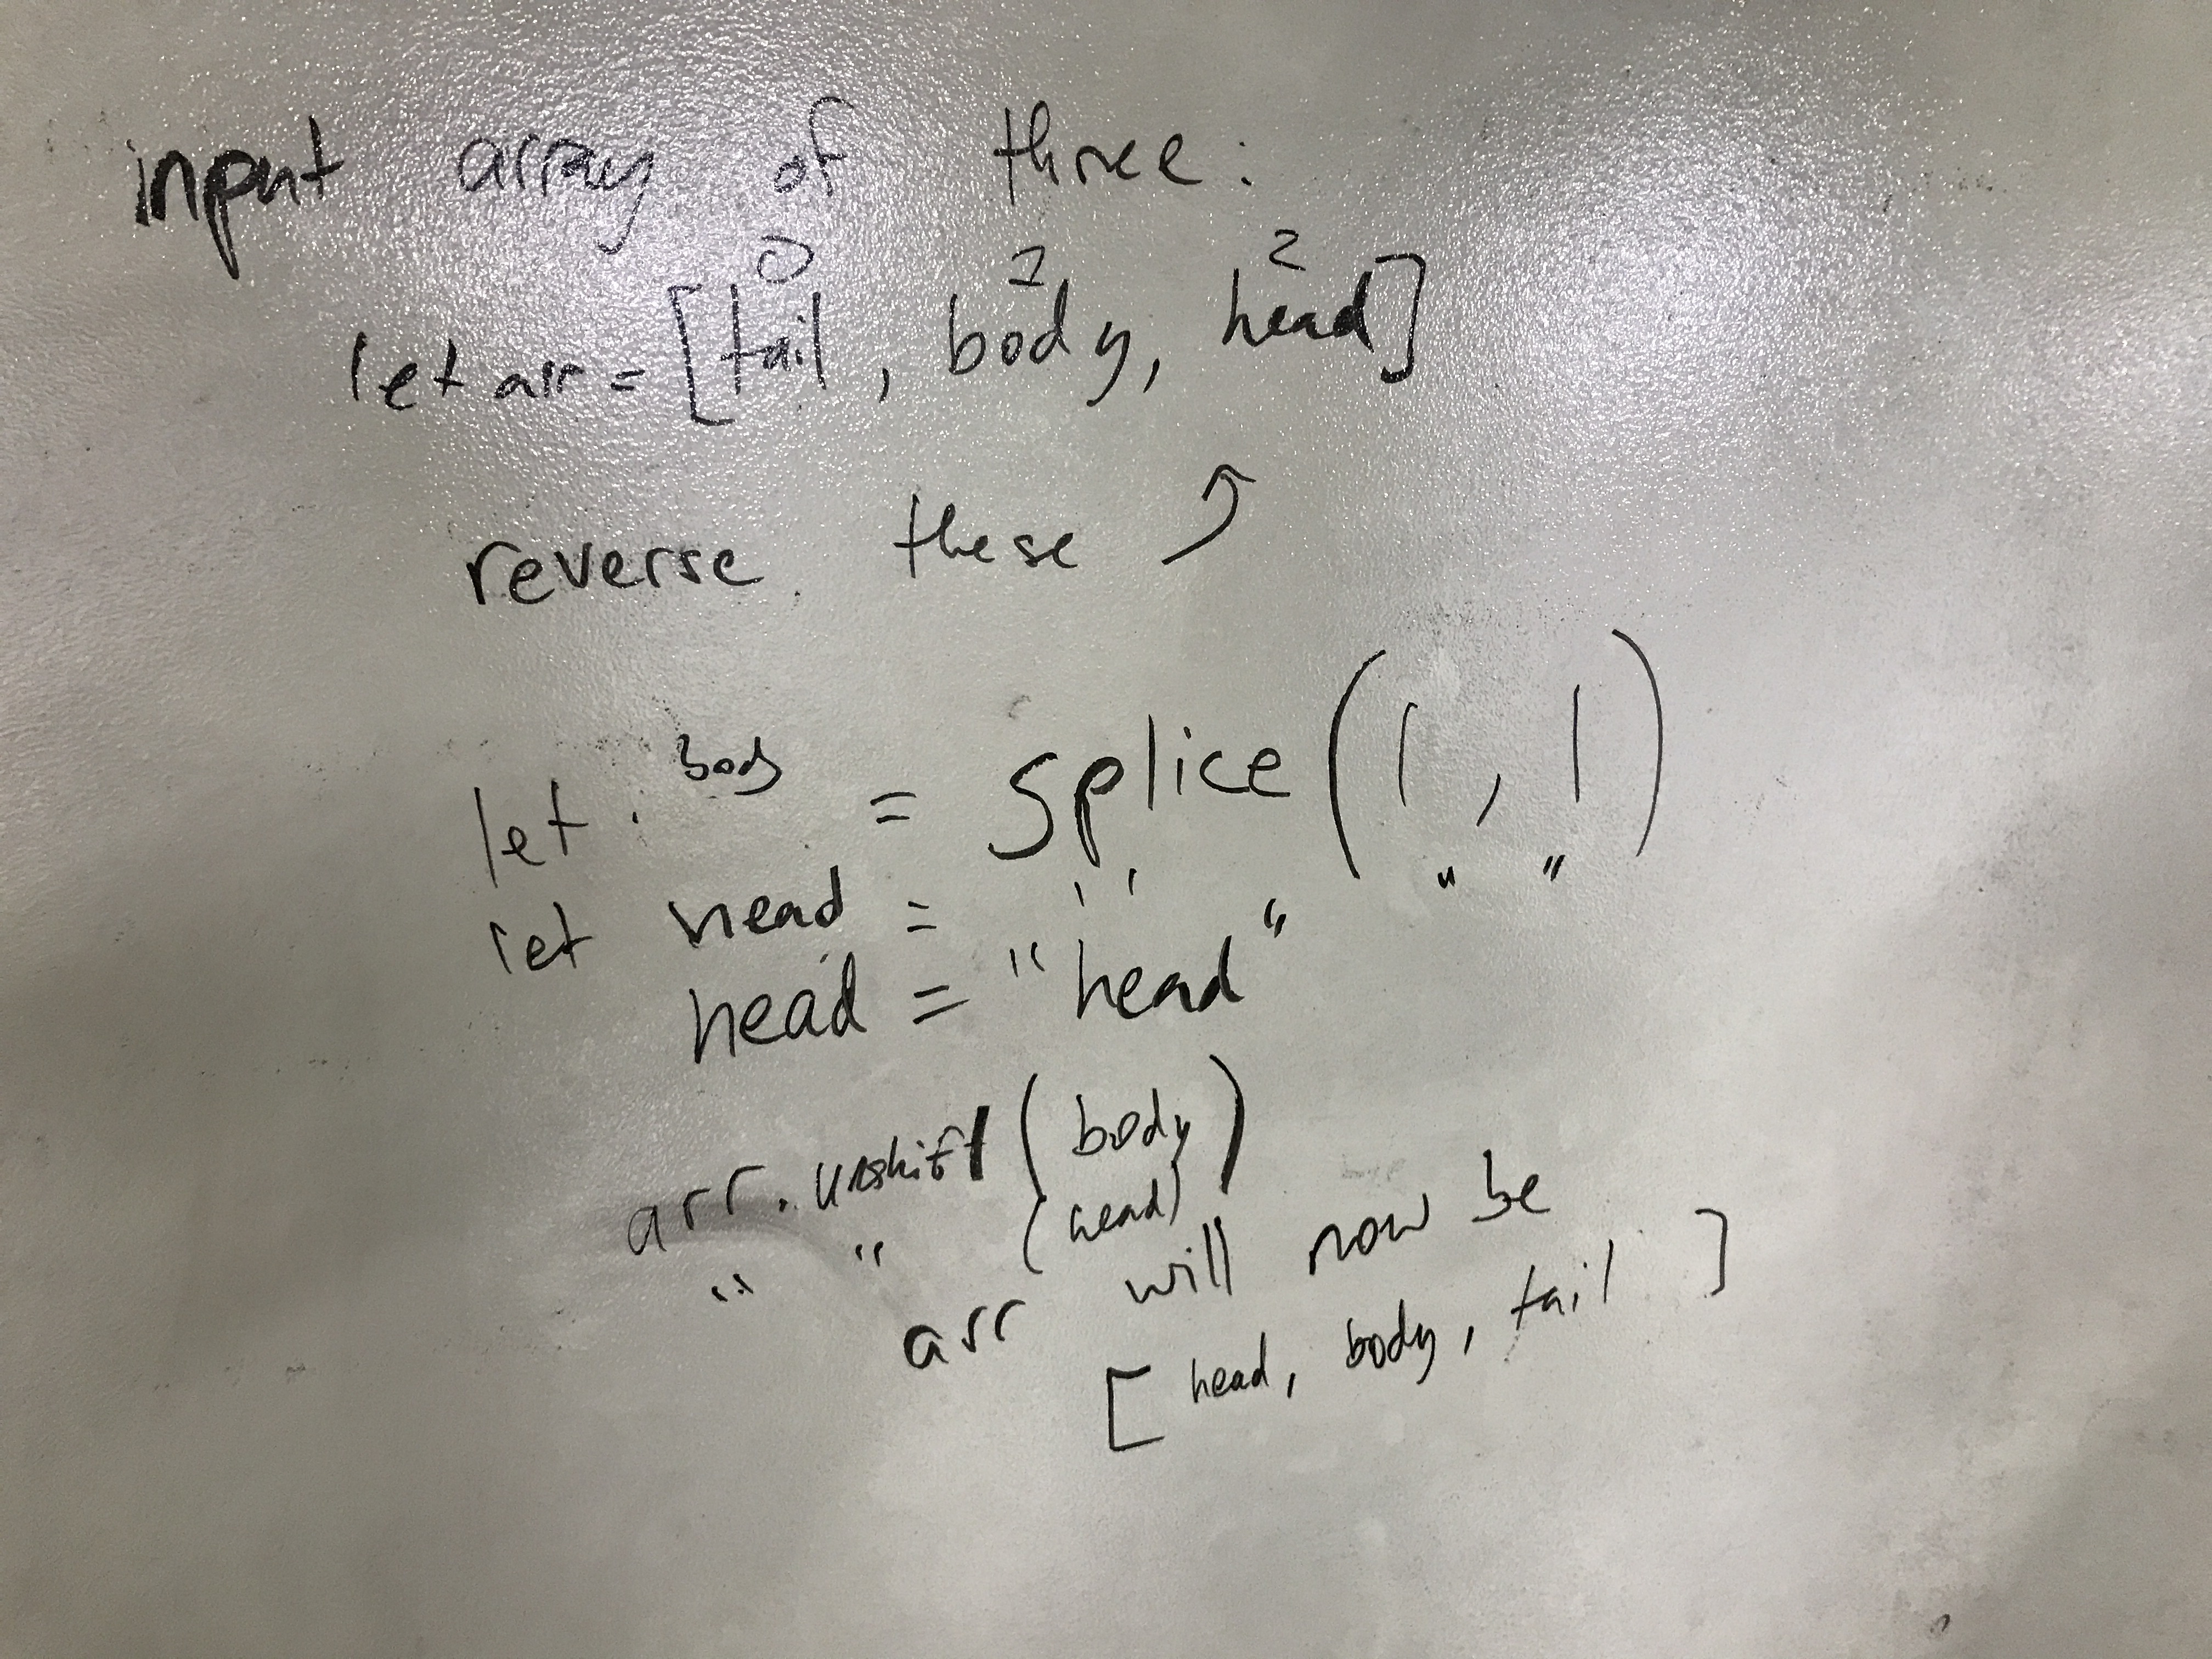 input array of three:
0 1 2
let arr = [tail, body, head]
reverse these ⤴
let body = splice(1, 1)
let head = " " " "
head = "head"
arr.unshift(body)
" " (head)
arr will now be
[head, body, tail]